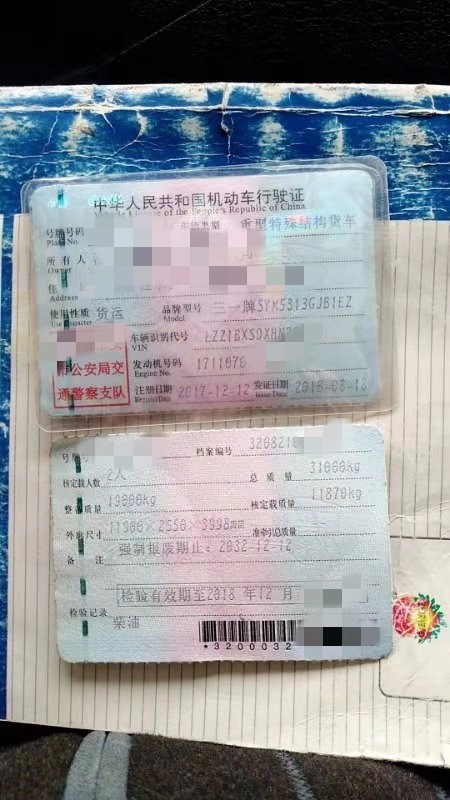 中华人民共和国机动车行驶证
Vehicle License of the People's Republic of China
号牌号码 车辆类型 重型特殊结构货车
Plate No.
所有人
Owner
住
Address
使用性质 货运 品牌型号 三一牌SYM5313GJB1EZ
Use Character Model
车辆识别代号 LZZ1BXS0XH
VIN
公安局交
通警察支队
发动机号码 1711070
Engine No.
注册日期 2017-12-12 发证日期 2018-08-18
Register Date Issue Date
号 档案编号 3208210
核定载人数 2人 总质量 31000kg
整备质量 19000kg 核定载质量 11870kg
外廓尺寸 11900×2550×3998mm 准牵引总质量
备注 强制报废期止：2032-12-12
检验有效期至2018年12月
检验记录
柴油
*3200032